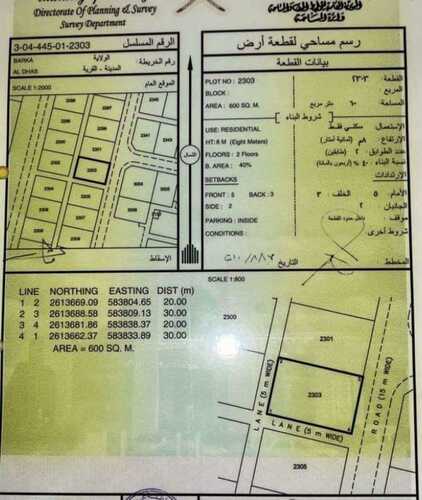 Directorate of Planning & Survey
Survey Department
3-04-445-01-2303
الرقم المسلسل
رسم مساحي لقطعة أرض
BARKA
الولاية
رقم الخريطة
AL DHAS
المدينة - القرية
SCALE 1:2000
الموقع العام
الشمال
الإسقاط
بيانات القطعة
PLOT NO : 2303
القطعة : ٢٣٠٣
BLOCK :
المربع :
AREA : 600 SQ. M.
المساحة : ٦٠٠ متر مربع
شروط البناء
USE: RESIDENTIAL
الإستعمال: سكني فقط
HT:8 M (Eight Meters)
FLOORS : 2 Floors
B. AREA : 40%
SETBACKS
الإرتدادات
FRONT : 5 BACK : 3
الأمام ٥ الخلف ٣
SIDE : 2
الجانبان ٢
PARKING : INSIDE
موقف: داخل حدود القطعة
CONDITIONS :
شروط أخرى
المخطط
التاريخ
SCALE 1:600
LINE NORTHING EASTING DIST (m)
1 2 2613669.09 583804.65 20.00
2 3 2613688.58 583809.13 30.00
3 4 2613681.86 583838.37 20.00
4 1 2613662.37 583833.89 30.00
AREA = 600 SQ. M.
2300
2301
2303
2305
LANE (5 m WIDE)
LANE (5 m WIDE)
ROAD (15 m WIDE)